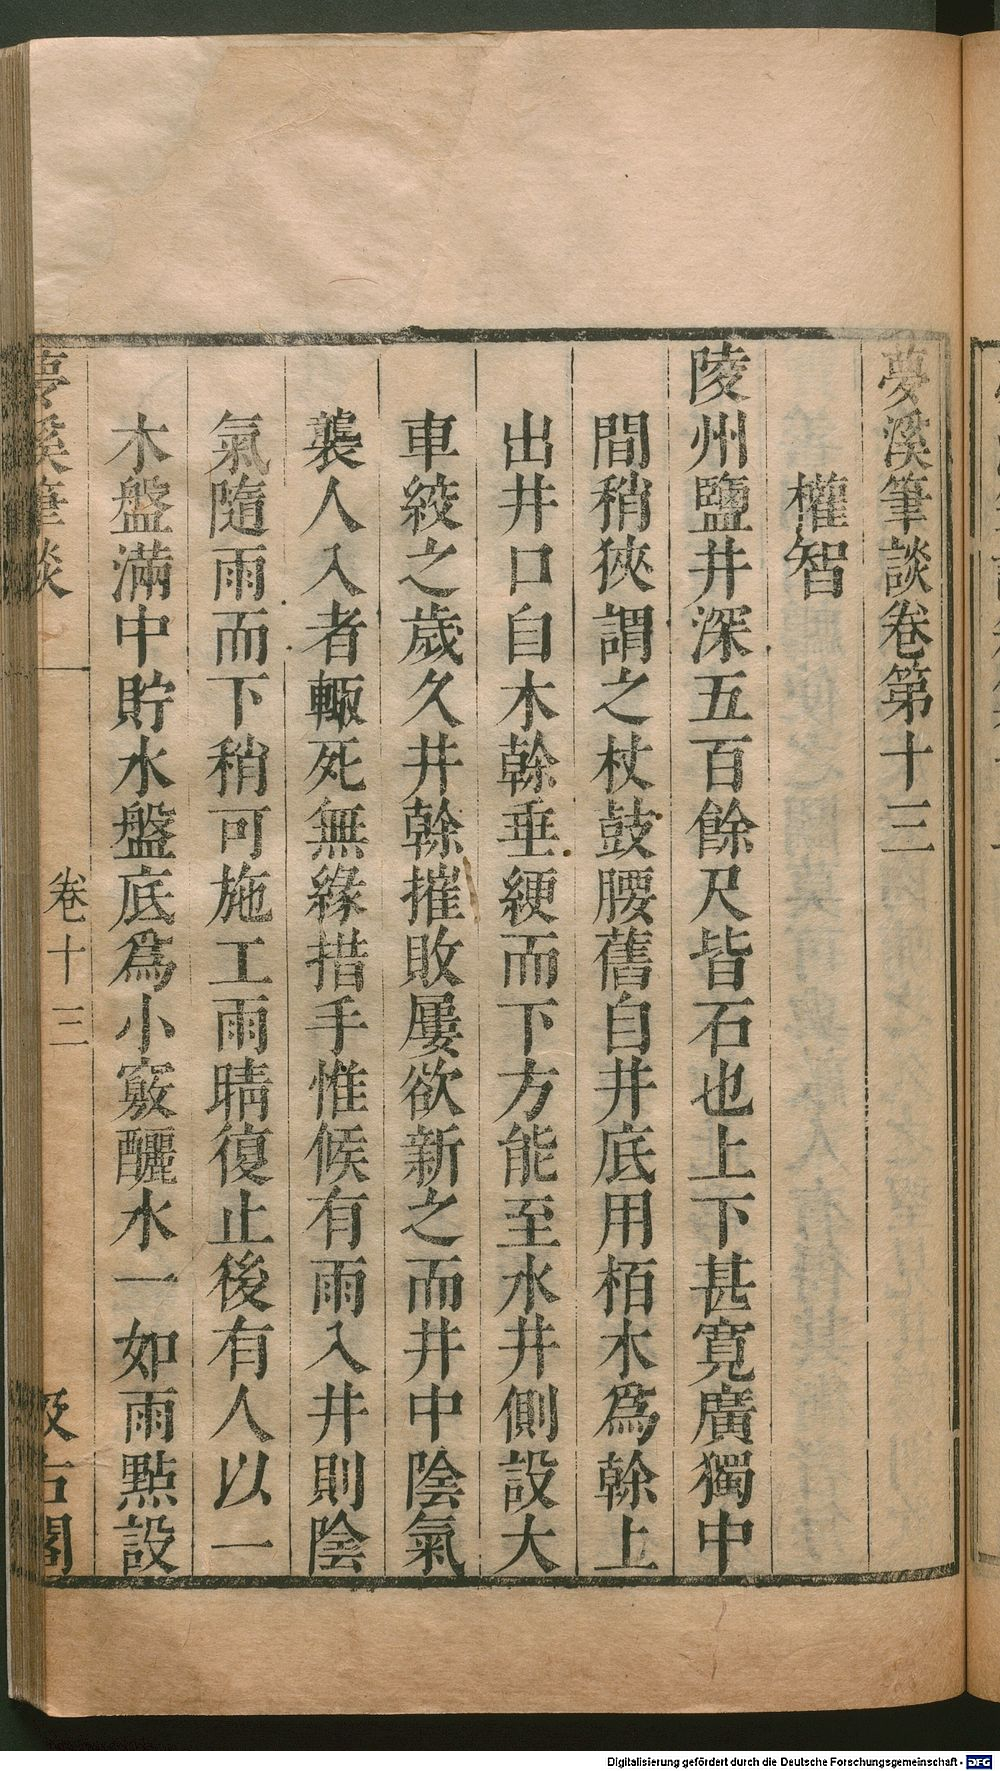 夢溪筆談卷第十三
權智
陵州鹽井深五百餘尺皆石也上下甚寬廣獨中
間稍狹謂之杖鼓腰舊自井底用栢木爲榦上
出井口自木榦垂綆而下方能至水井側設大
車絞之歲久井榦摧敗屢欲新之而井中陰氣
襲人入者輙死無緣措手惟候有雨入井則陰
氣隨雨而下稍可施工雨晴復止後有人以一
木盤滿中貯水盤底爲小竅釃水一如雨點設
夢溪筆談
卷十三
汲古閣
Digitalisierung gefördert durch die Deutsche Forschungsgemeinschaft - DFG